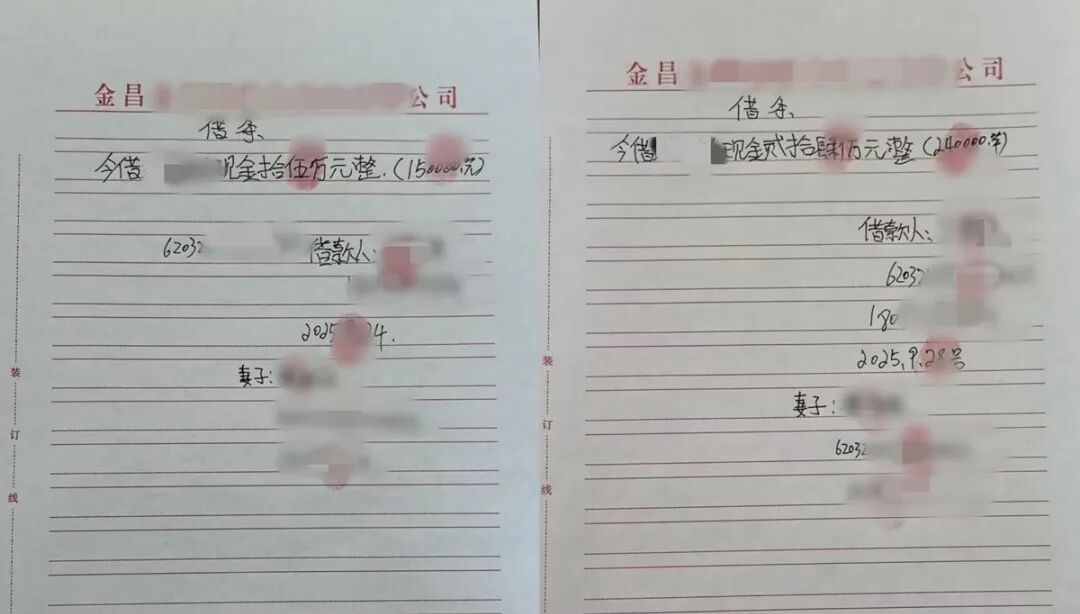 金昌 公司
借条
今借 现金拾伍万元整.(150000.元)
62032 借款人:
2025. 24.
妻子:
装
订
线
金昌 公司
借条
今借 现金贰拾肆万元整(240000.元)
借款人:
62032
180
2025.9.28号
妻子:
62032
装
订
线